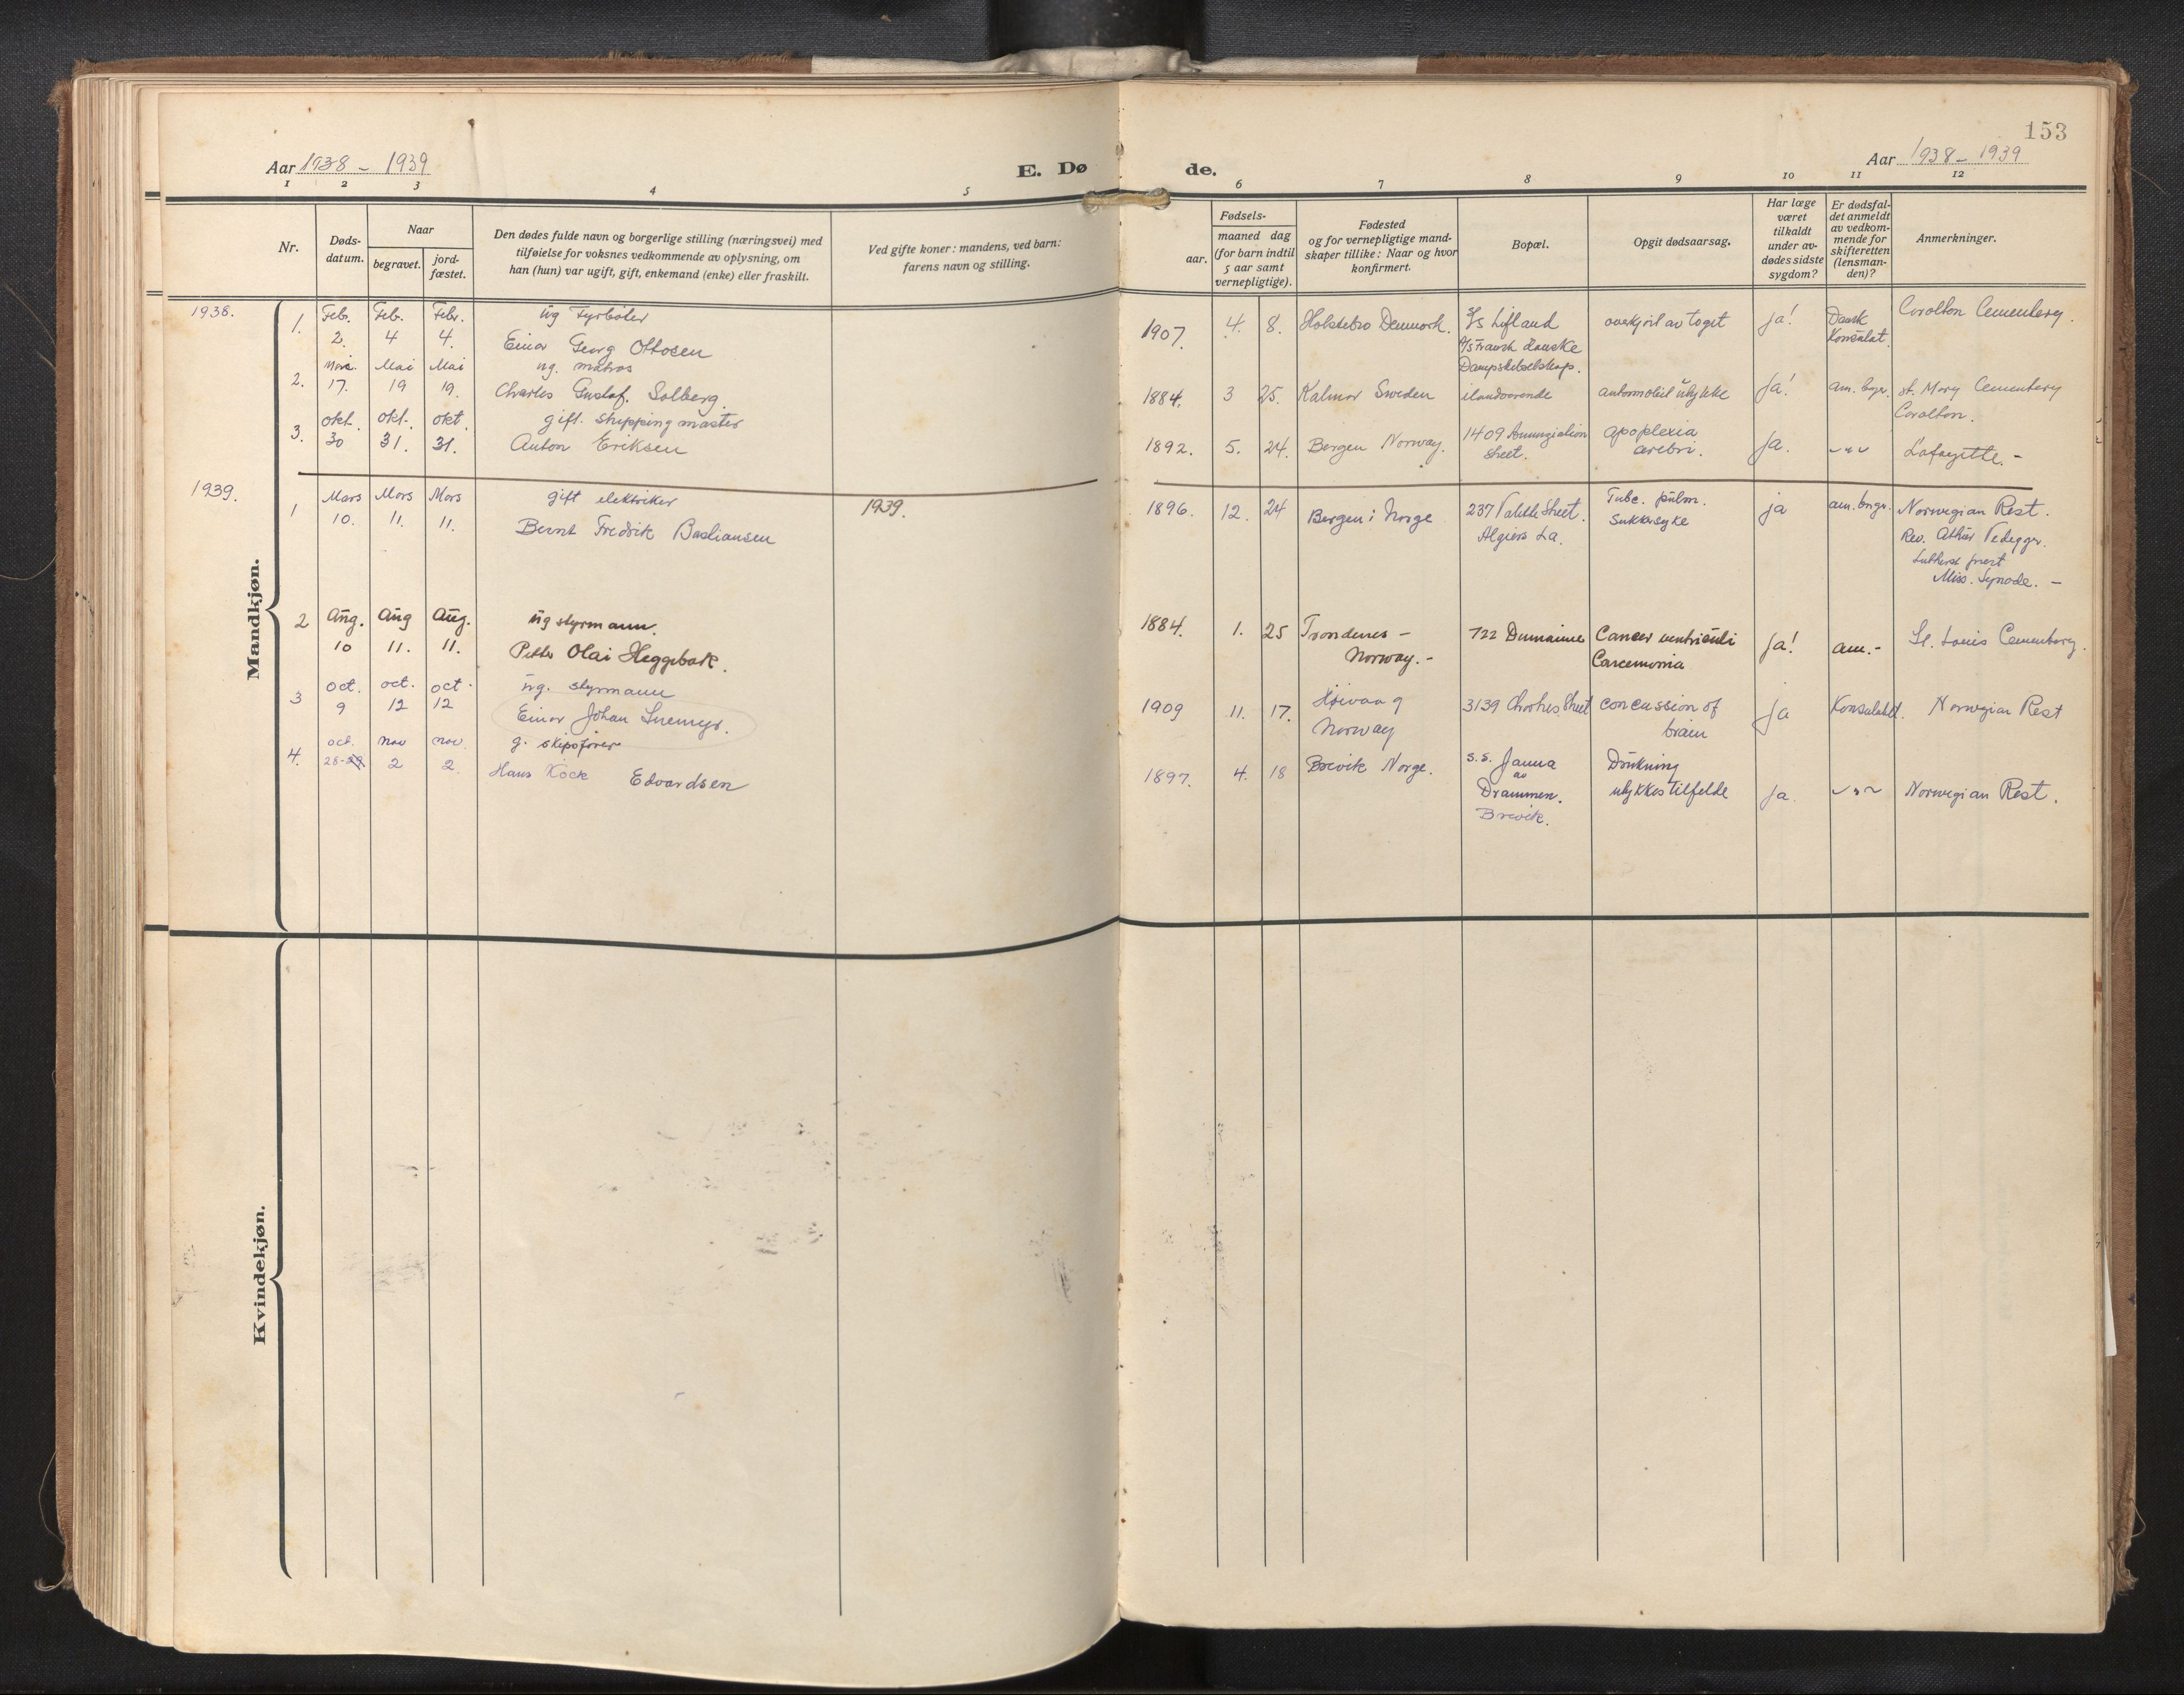 153
Aar 1938 - 1939
E. Dø
de.
Aar 1938 - 1939
1 2 3 4 5
6 7 8 9 10 11 12
Nr.
Døds-
datum.
Naar
begravet.
jord-
fæstet.
Den dødes fulde navn og borgerlige stilling (næringsvei) med
tilføielse for voksnes vedkommende av oplysning, om
han (hun) var ugift, gift, enkemand (enke) eller fraskilt.
Ved gifte koner: mandens, ved barn:
farens navn og stilling.
Fødsels-
aar.
maaned dag
(for barn indtil
5 aar samt
vernepligtige).
Fødested
og for vernepligtige mand-
skaper tillike: Naar og hvor
konfirmert.
Bopæl.
Opgit dødsaarsag.
Har læge
været
tilkaldt
under av-
dødes sidste
sygdom?
Er dødsfal-
det anmeldt
av vedkom-
mende for
skifteretten
(lensman-
den)?
Anmerkninger.
Mandkjøn.
1938.
1. Feb. Feb. Febr. ug Fyrbøter
2. 4 4. Einar Georg Ottosen
1907. 4. 8. Holstebro Denmark.
S/S Lifland
A/S Fransk Danske
Dampskibselskap.
overkjørt av toget
ja!
Dansk
Konsulat.
Carolton Cementery.
2. Mai Mai Mai ug. matros
17. 19 19. Charles Gustaf. Solberg.
1884. 3 25. Kalmar Sweden
ilandværende
automobil ulykke
Ja!
am. bogr.
st. Mary Cementery
Carolton.
3. okt. okt. okt. gift. shipping master
30 31. 31. Anton Eriksen
1892. 5. 24. Bergen Norway.
1409 Annunziation
Street.
apoplexia
cerebri.
Ja.
Lafayette. -
1939.
1 Mars Mars Mars gift elektriker
10. 11. 11. Bernt Fredrik Bastiansen
1939.
1896. 12. 24 Bergen i Norge
237 Valette Street.
Algiers La.
Tubc. pulm.
Sukkersyke
ja
am. bogr.
Norwegian Rest.
Rev. Athur
Luthersk prest
Miss. Synode. -
2 Aug. Aug Aug. ug styrmann.
10 11. 11. Petter Olai Heggebak.
1884. 1. 25 Trondenes -
Norway. -
722 Dumaine
Cancer ventriculi
Carcemonia
Ja!
am. -
St. Louis Cementary.
3 oct. oct. oct. ug. styrmann
9 12 12 Einar Johan Snemyr.
1909 11. 17. Høivaag
Norway
3139 Chartres Street
concussion of
brain
Ja
Konsulatet.
Norwegian Rest
4. oct. nov nov. g. skipsfører
28-29 2 2. Hans Kock Edvardsen
1897. 4. 18 Brevik Norge.
s.s. Janna
av
Drammen.
Brevik.
Drukning
ulykkestilfelde
Ja.
Norwegian Rest.
Kvindekjøn.